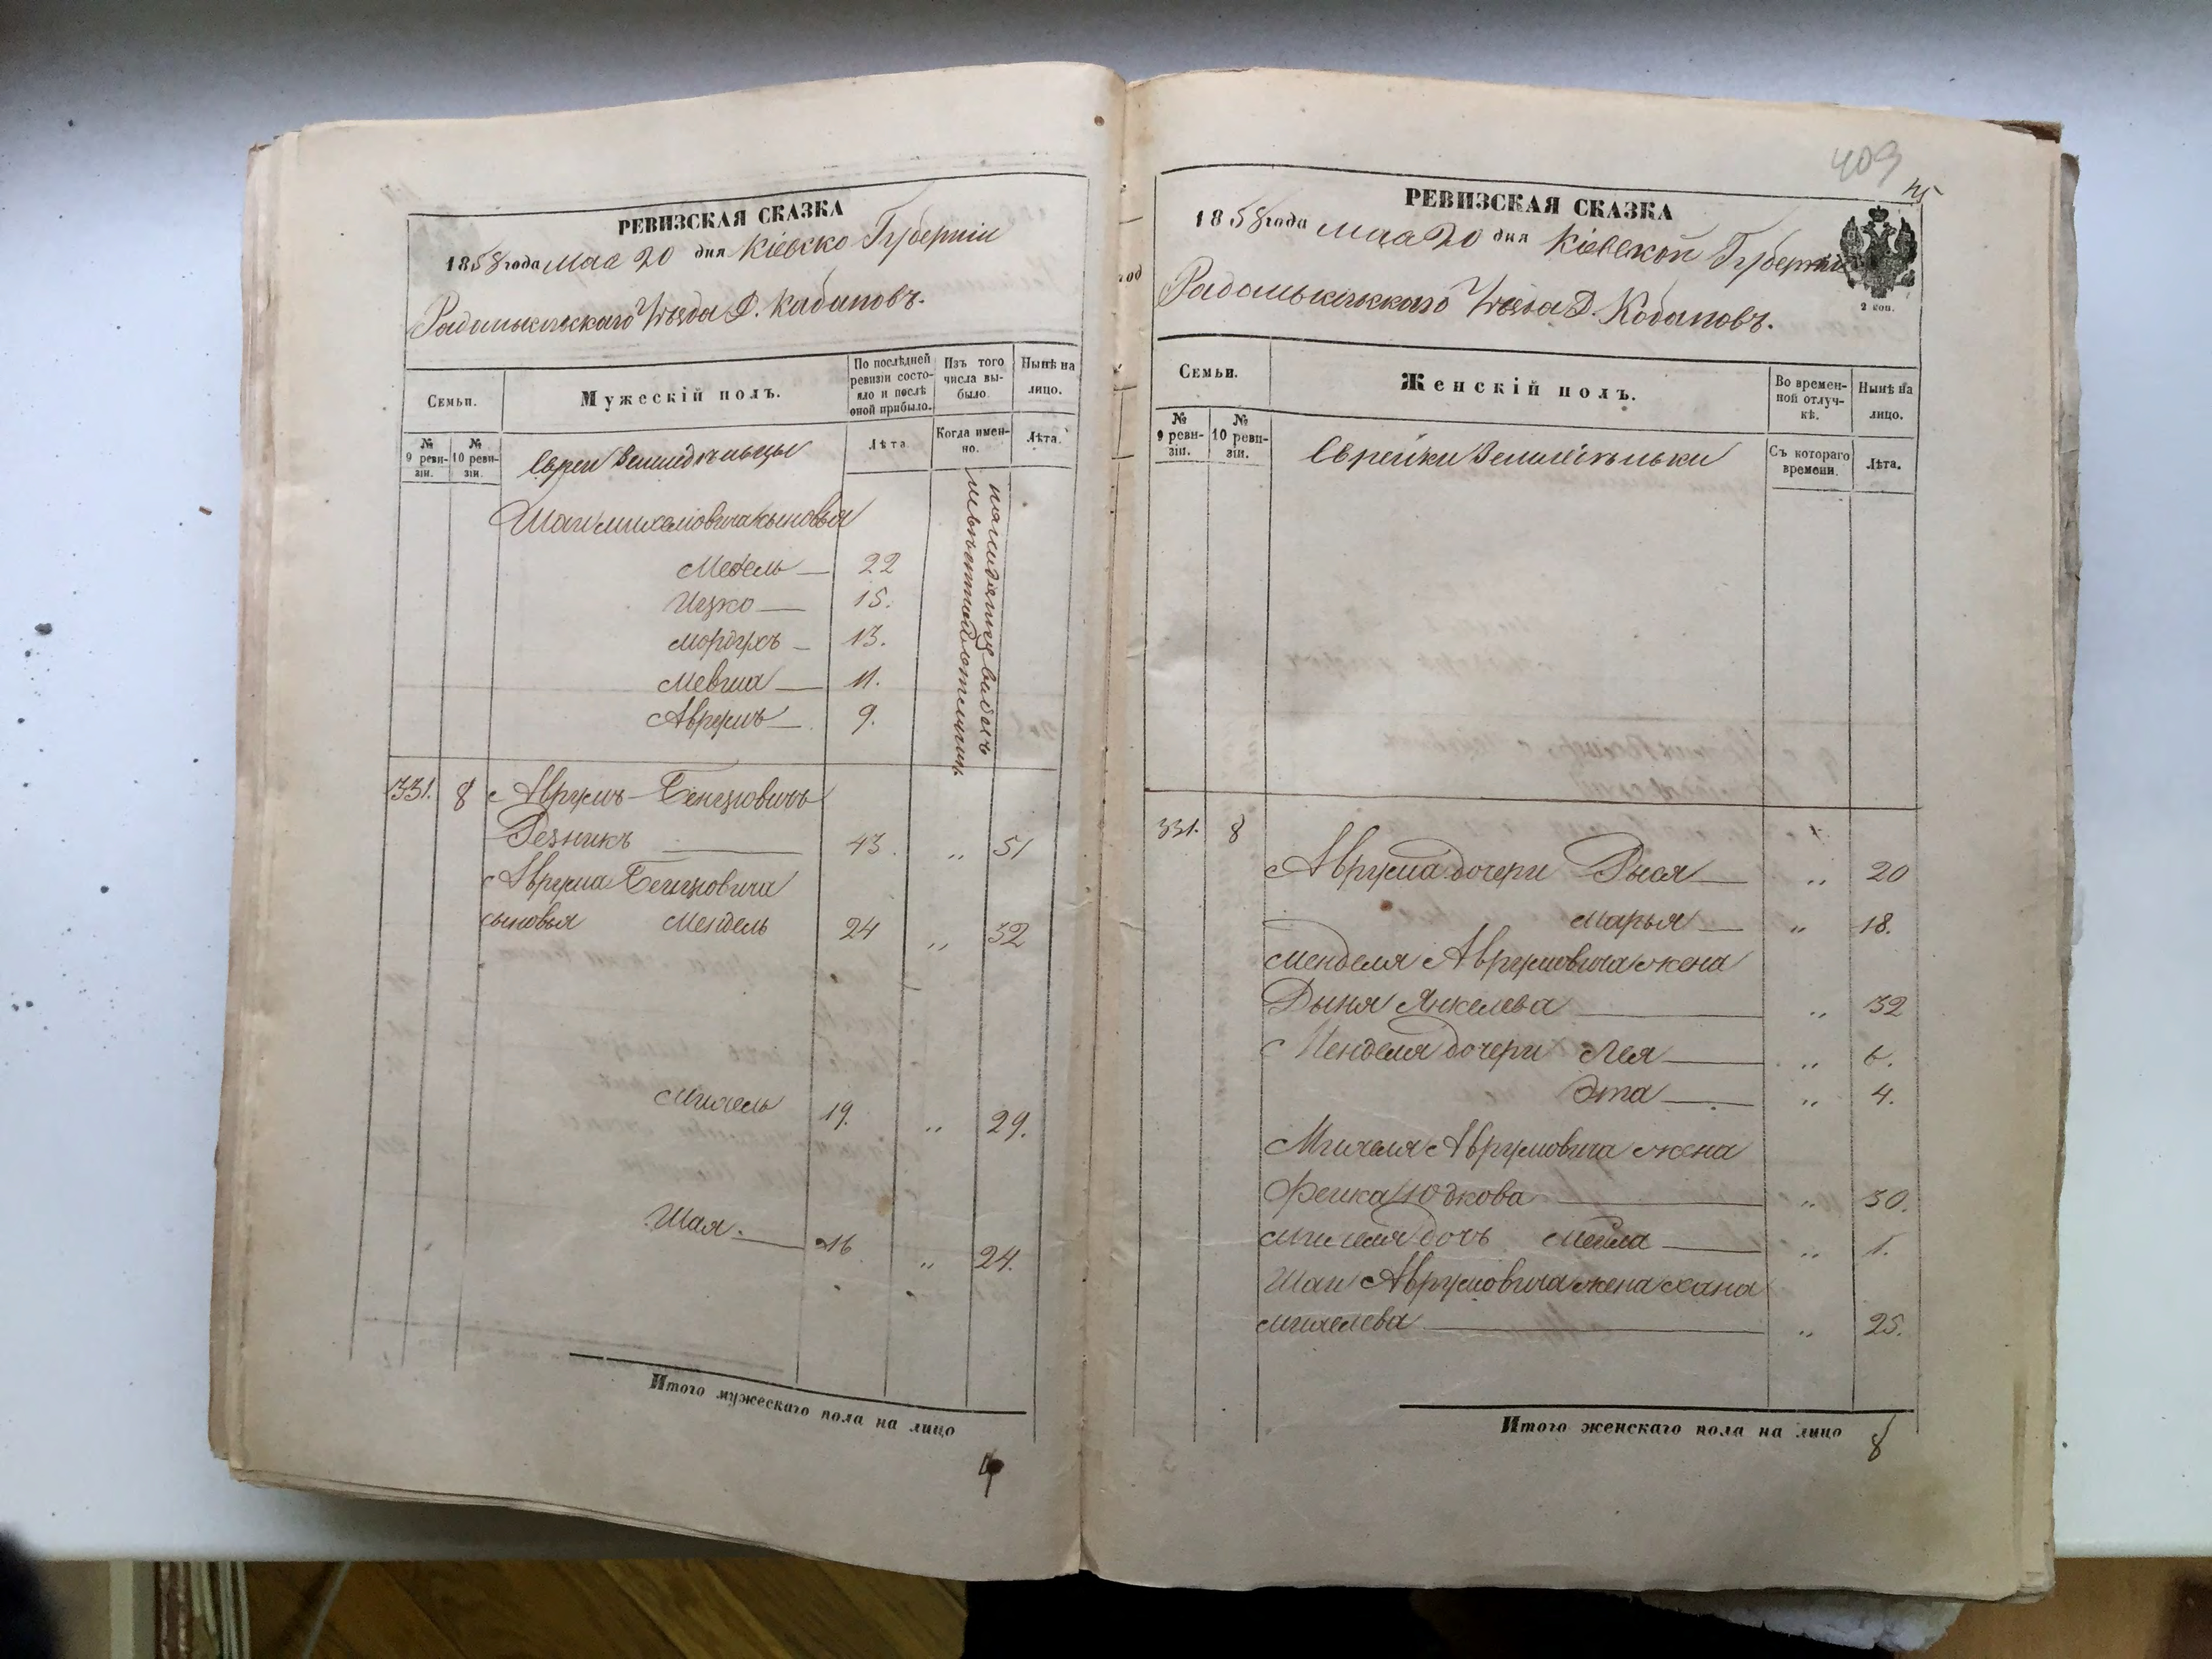 РЕВИЗСКАЯ СКАЗКА
1858 года мая 20 дня Кіевско Губерніи
Радомысльскаго Уѣзда Д. Кабановъ.
Семьи.
Мужескій полъ.
По послѣдней ревизіи состояло и послѣ оной прибыло.
Изъ того числа выбыло.
Нынѣ на лицо.
№ 9 ревизіи.
№ 10 ревизіи.
Евреи Земледѣльцы
Лѣта
Когда именно.
Лѣта.
Шаи Михелювича сыновья
Мевель — 22
Ицко — 15.
Мордухъ — 13.
Мевша — 11.
Аврумъ — 9.
331. 8 Аврумъ Бенцювичъ
Резникъ — 43. „ 51
Аврума Бенцювича
сыновья Мендель 24 „ 32
Михель 19. „ 29.
Шая. — 16 „ 24.
Итого мужескаго пола на лицо
4
409
РЕВИЗСКАЯ СКАЗКА
1858 года мая 20 дня Кіевской Губерніи
2 коп.
Радомысльскаго Уѣзда Д. Кобановъ.
Семьи.
Женскій полъ.
Во временной отлучкѣ.
Нынѣ на лицо.
№ 9 ревизіи.
№ 10 ревизіи.
Еврейки Земледѣльки
Съ котораго времени.
Лѣта.
331. 8
Аврума дочери Рыся — „ 20
Марья — „ 18.
Менделя Аврумовича жена
Дыня Янкелева — „ 32
Менделя дочери Лея — „ 6.
Эта — „ 4.
Михеля Аврумовича жена
Фейга Юдкова — „ 30.
Михеля дочь Мейла — „ 1.
Шаи Аврумовича жена Хана
Михелева — „ 25.
Итого женскаго пола на лицо 8